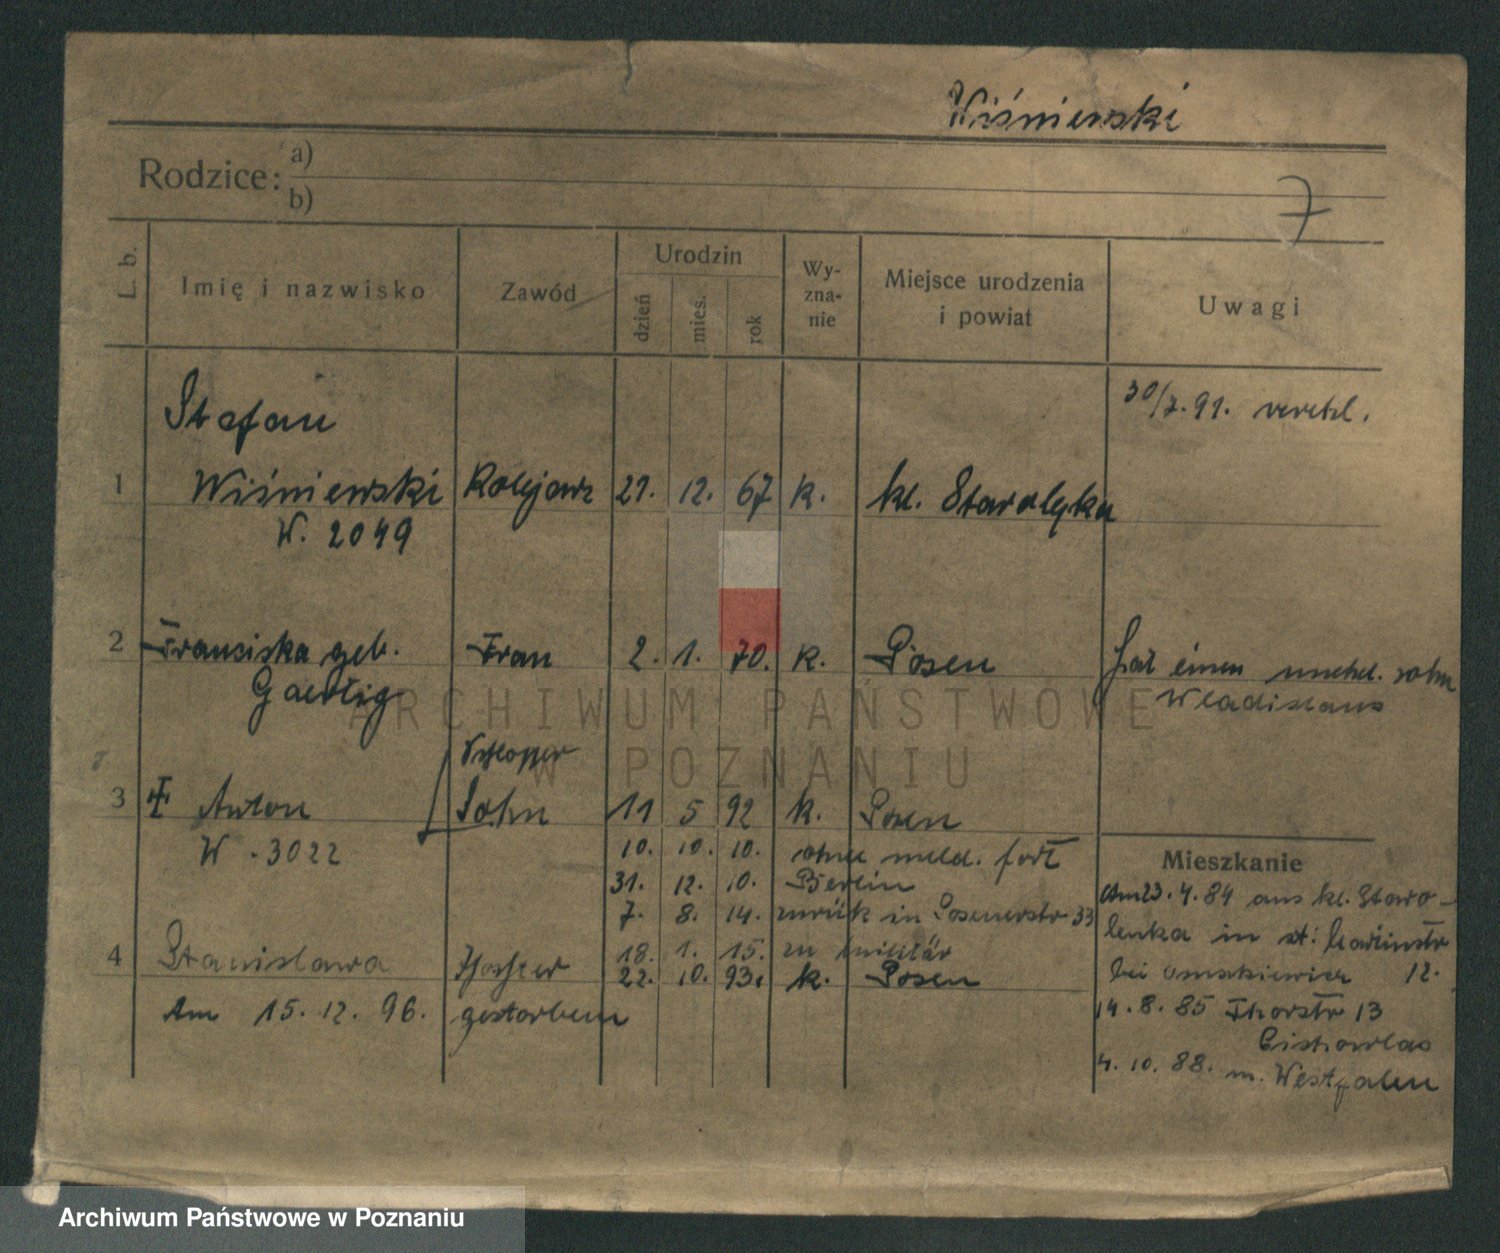 Wiśniewski
Rodzice: a)
b)
7
L. b.
Imię i nazwisko
Zawód
Urodzin
dzień
mies.
rok
Wy-
zna-
nie
Miejsce urodzenia
i powiat
Uwagi
30/7.91. verehl.
Stefan
1 Wiśniewski Kolejarz 21. 12. 67 k. kl. Starolęka
W. 2049
2 Franciska geb. Frau 2. 1. 70. k. Posen Hat einen unehel. sohn
Wladislaus
3 Anton Sohn 11 5 92 k. Posen
W. 3022
10. 10. 10. ohne meld. fort
31. 12. 10. Berlin
7. 8. 14. zurük in Posenerstr 33
18. 1. 15. zu militär
4 Stanislawa Tochter 22. 10. 93. k. Posen
Am 15. 12. 96. gestorben
Mieszkanie
Am 23.4.84 aus kl. Staro-
lenka in st. Martinstr
bei 12.
14.8.85 Thorstr 13
4.10.88. n. Westfalen
ARCHIWUM PAŃSTWOWE
W POZNANIU
Archiwum Państwowe w Poznaniu